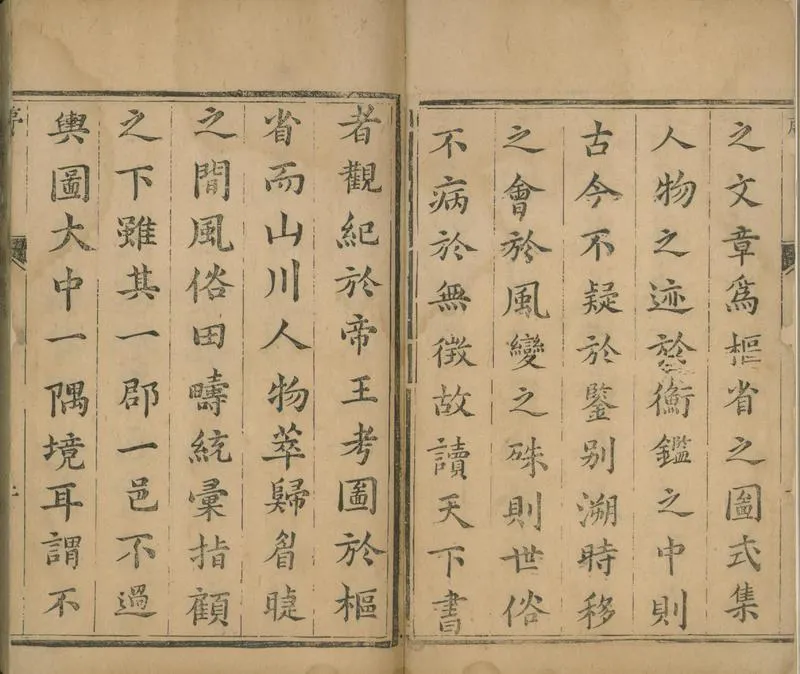 之文章爲樞省之圖式集
人物之迹於衡鑑之中則
古今不疑於鑒别溯時移
之會於風變之殊則世俗
不病於無徴故讀天下書
者觀紀於帝王考圖於樞
省而山川人物萃歸眉睫
之閒風俗田疇統彙指顧
之下雖其一郡一邑不過
輿圖大中一隅境耳謂不